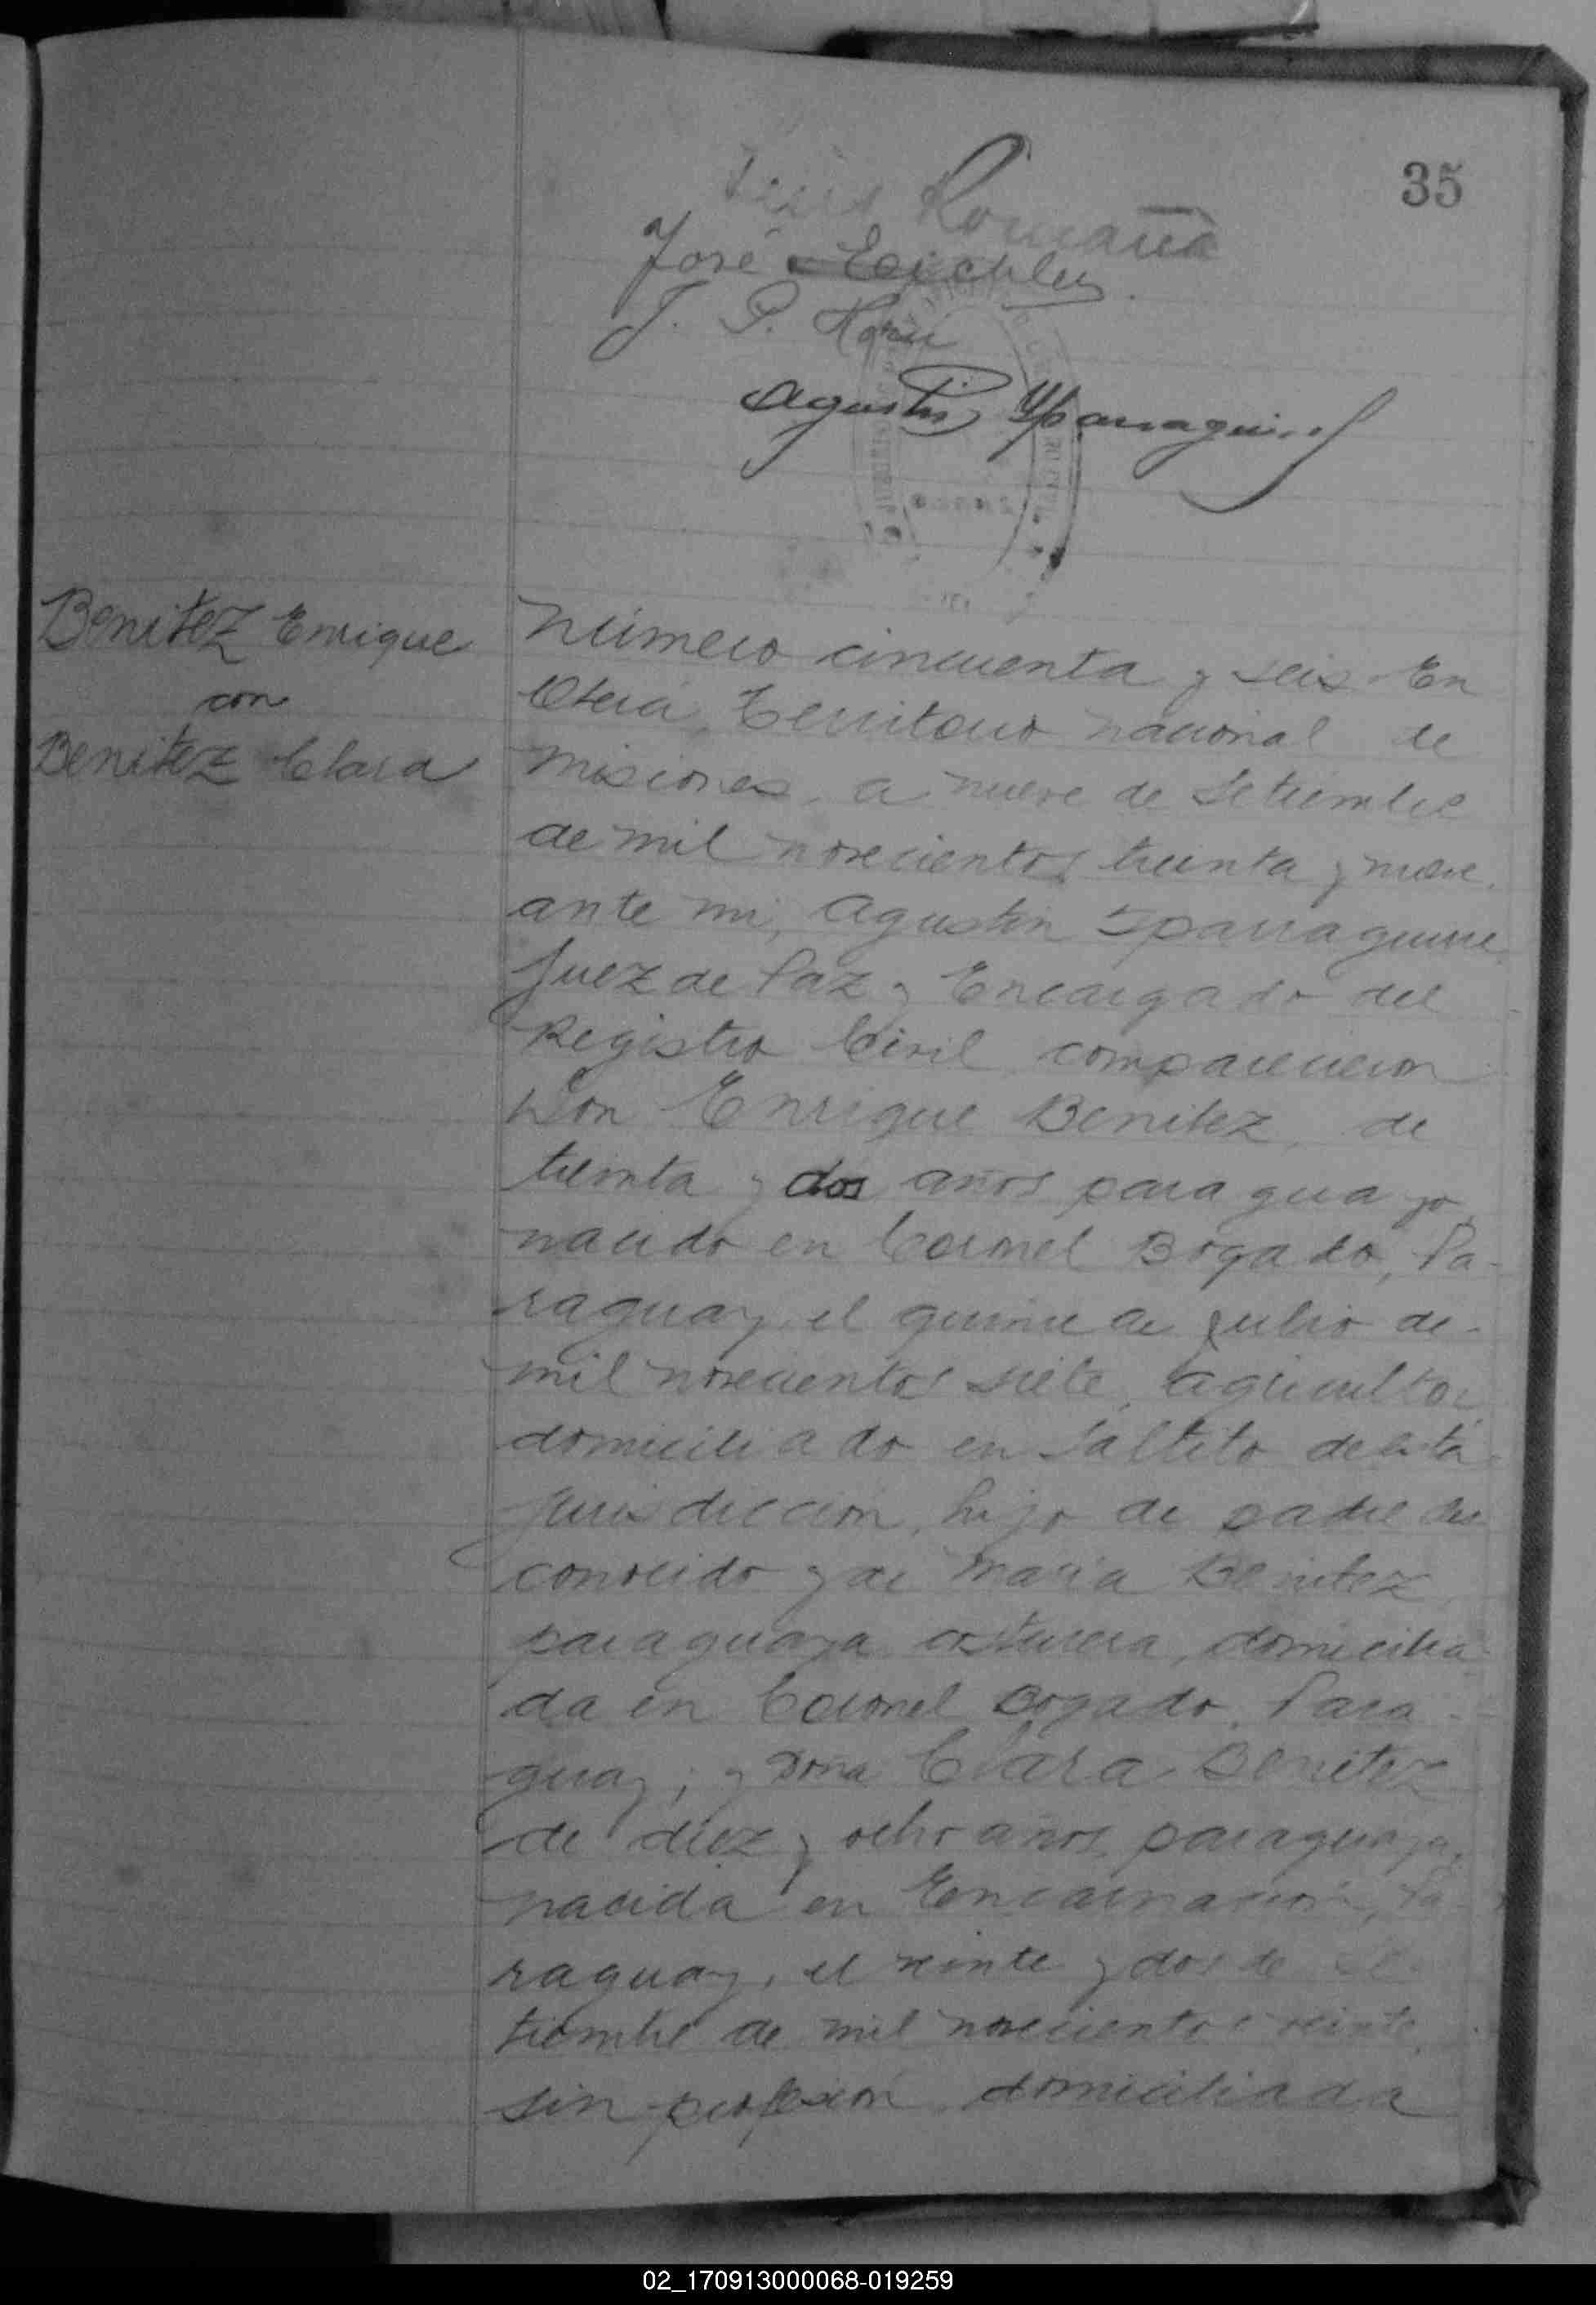 35
Romaña
José Eichler
J. P.
Agustin Yparraguirre
Benitez Enrique
con
Benitez Clara
Número cincuenta y seis En
Oberá, Territorio nacional de
Misiones, a nueve de Setiembre
de mil novecientos treinta y nueve,
ante mi, Agustin Iparraguirre
Juez de Paz y Encargado del
Registro Civil comparecieron
Don Enrique Benitez, de
treinta y dos años paraguayo
nacido en Coronel Bogado, Pa-
raguay, el quince de julio de
mil novecientos siete, agricultor
domiciliado en Saltito de esta
jurisdiccion, hijo de padre des
conocido y de Maria Benitez
paraguaya costurera, domicilia-
da en Coronel Bogado, Para-
guay; y Doña Clara Benitez
de diez y ocho años, paraguaya,
nacida en Encarnación, Pa-
raguay, el veinte y dos de Se-
tiembre de mil novecientos veinte,
sin profesión, domiciliada
02_170913000068-019259